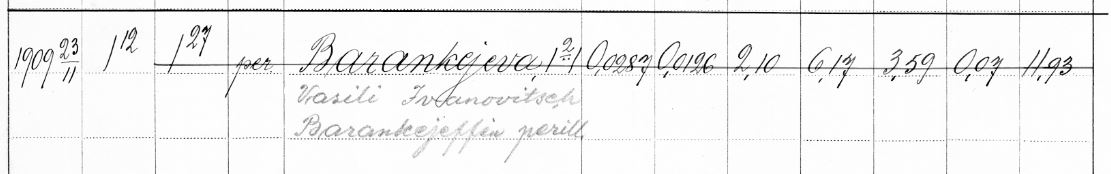 1909 23/11 1¹² 1²⁷ per. Barankejeva, 1²⁼1 0,0287 0,0126 2,10 6,17 3,59 0,07 11,93
Vasili Ivanovitsch
Barankejeffin perill.